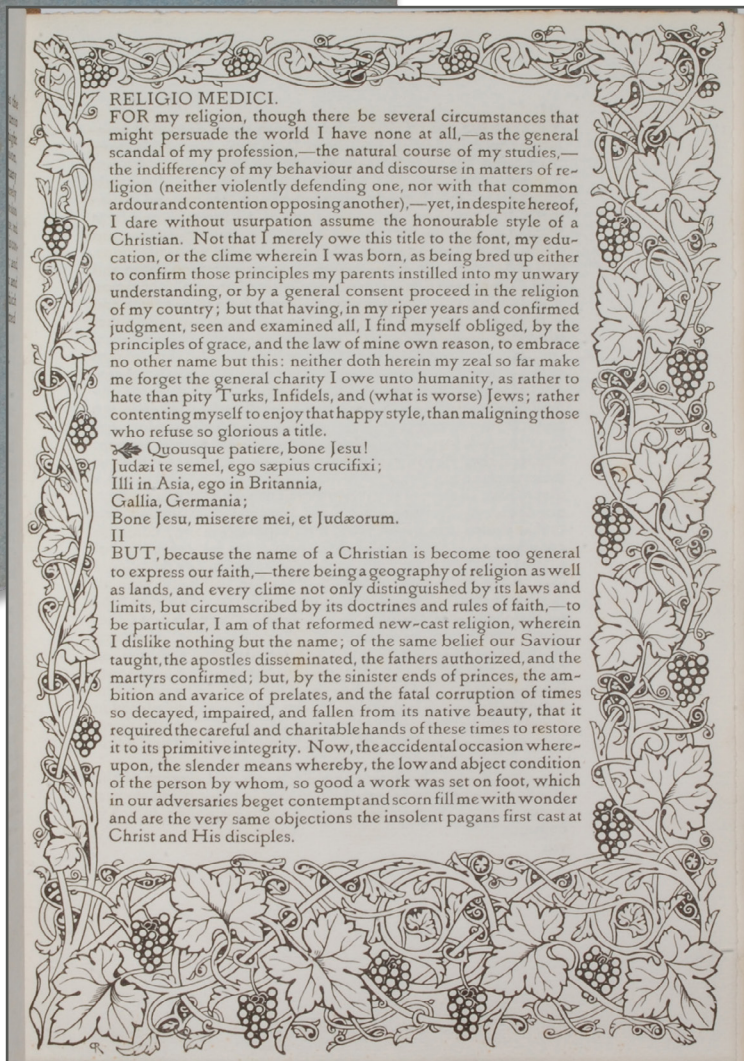 RELIGIO MEDICI.
FOR my religion, though there be several circumstances that
might persuade the world I have none at all,—as the general
scandal of my profession,—the natural course of my studies,—
the indifferency of my behaviour and discourse in matters of re-
ligion (neither violently defending one, nor with that common
ardour and contention opposing another),—yet, in despite hereof,
I dare without usurpation assume the honourable style of a
Christian. Not that I merely owe this title to the font, my edu-
cation, or the clime wherein I was born, as being bred up either
to confirm those principles my parents instilled into my unwary
understanding, or by a general consent proceed in the religion
of my country; but that having, in my riper years and confirmed
judgment, seen and examined all, I find myself obliged, by the
principles of grace, and the law of mine own reason, to embrace
no other name but this: neither doth herein my zeal so far make
me forget the general charity I owe unto humanity, as rather to
hate than pity Turks, Infidels, and (what is worse) Jews; rather
contenting myself to enjoy that happy style, than maligning those
who refuse so glorious a title.
Quousque patiere, bone Jesu!
Judæi te semel, ego sæpius crucifixi;
Illi in Asia, ego in Britannia,
Gallia, Germania;
Bone Jesu, miserere mei, et Judæorum.
II
BUT, because the name of a Christian is become too general
to express our faith,—there being a geography of religion as well
as lands, and every clime not only distinguished by its laws and
limits, but circumscribed by its doctrines and rules of faith,—to
be particular, I am of that reformed new-cast religion, wherein
I dislike nothing but the name; of the same belief our Saviour
taught, the apostles disseminated, the fathers authorized, and the
martyrs confirmed; but, by the sinister ends of princes, the am-
bition and avarice of prelates, and the fatal corruption of times
so decayed, impaired, and fallen from its native beauty, that it
required the careful and charitable hands of these times to restore
it to its primitive integrity. Now, the accidental occasion where-
upon, the slender means whereby, the low and abject condition
of the person by whom, so good a work was set on foot, which
in our adversaries beget contempt and scorn fill me with wonder
and are the very same objections the insolent pagans first cast at
Christ and His disciples.